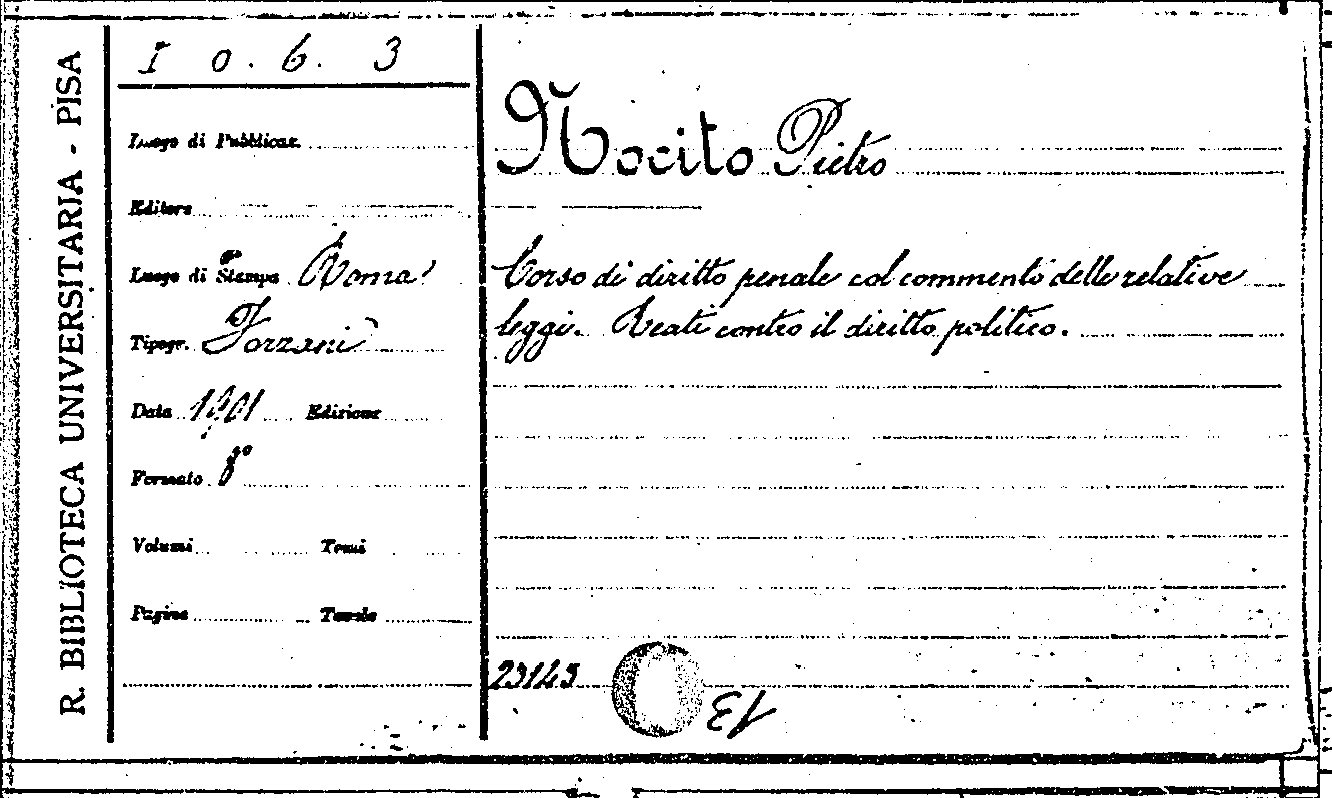 R. BIBLIOTECA UNIVERSITARIA - PISA
I 0. 6. 3
Luogo di Pubblicaz.
Editore
Luogo di Stampa Roma
Tipogr. Forzani
Data 1901 Edizione
Formato 8°
Volumi Tomi
Pagine Tavole
Nocito Pietro
Corso di diritto penale col commento delle relative
leggi. Reati contro il diritto politico.
23145
13